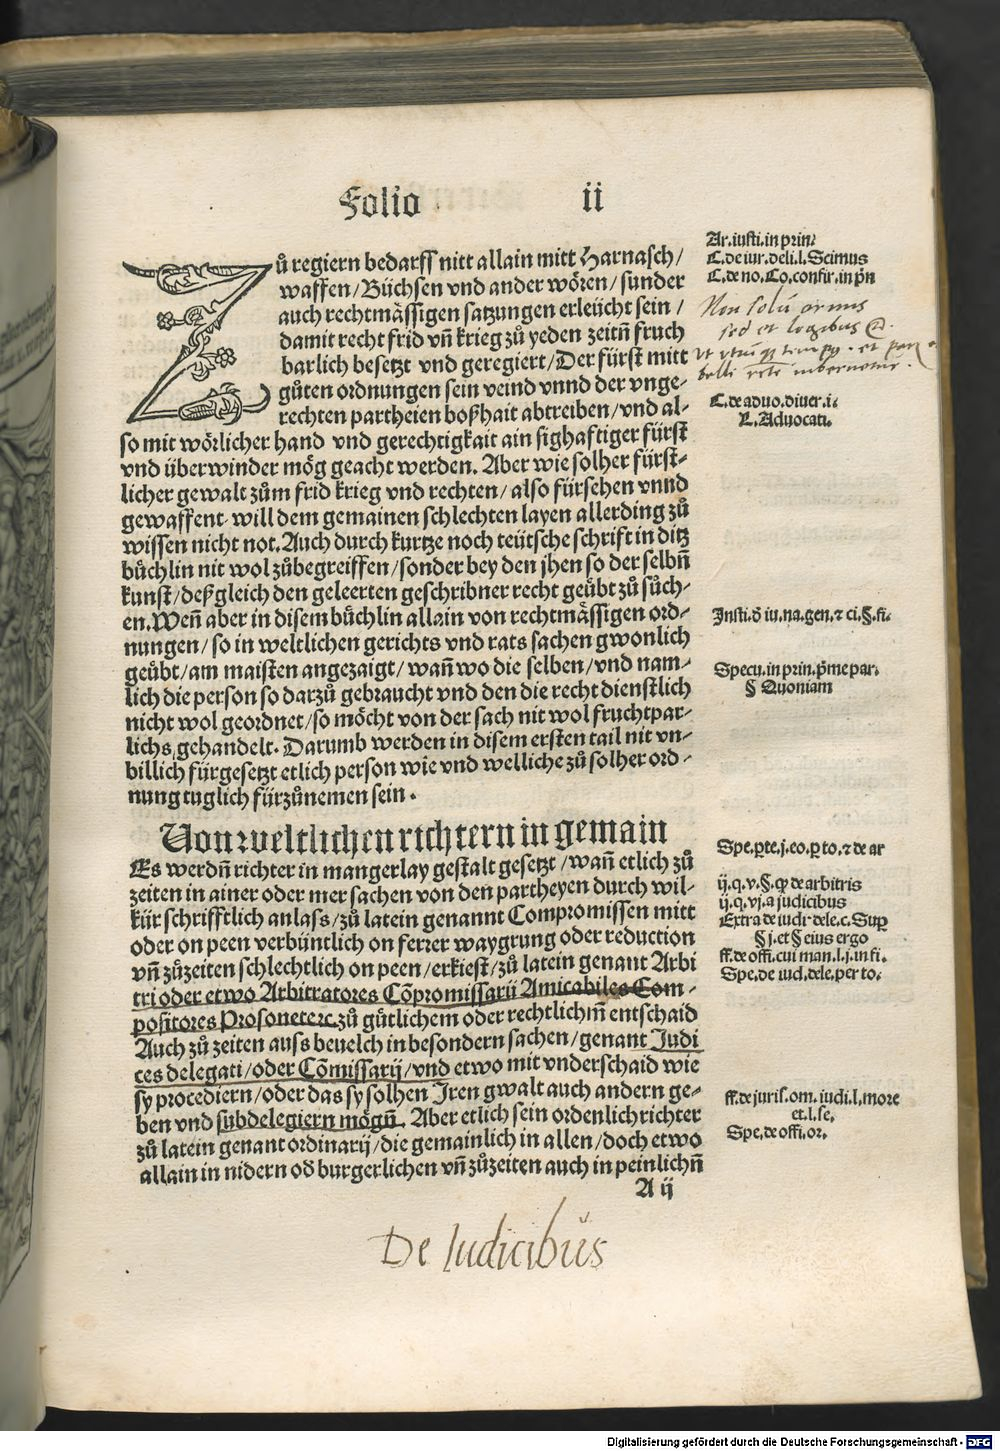 Folio ii
Zů regiern bedarff nitt allain mitt Harnasch/
waffen/Büchsen vnd ander wören/sunder
auch rechtmässigen satzungen erleücht sein/
damit recht frid vn̄ krieg zů yeden zeitn̄ fruch
barlich besetzt vnd geregiert/Der fürst mitt
gůten ordnungen sein veind vnnd der vnge-
rechten partheien boßhait abtreiben/vnd al-
so mit wörlicher hand vnd gerechtigkait ain sighaftiger fürst
vnd überwinder mög geacht werden. Aber wie solher fürst-
licher gewalt zům frid krieg vnd rechten/also fürsehen vnnd
gewaffent will dem gemainen schlechten layen allerding zů
wissen nicht not. Auch durch kurtze noch teütsche schrift in ditz
büchlin nit wol zůbegreiffen/sonder bey den jhen so der selbn̄
kunst/deßgleich den geleerten geschribner recht geübt zů sůch-
en. Wen̄ aber in disem büchlin allain von rechtmässigen ord-
nungen/so in weltlichen gerichts vnd rats sachen gwonlich
geübt/am maisten angezaigt/wan̄ wo die selben/vnd nam-
lich die person so darzů gebraucht vnd den die recht dienstlich
nicht wol geordnet/so möcht von der sach nit wol fruchtpar-
lichs gehandelt. Darumb werden in disem ersten tail nit vn-
billich fürgesetzt etlich person wie vnd welliche zů solher ord-
nung tuglich fürzůnemen sein.
Von weltlichen richtern in gemain
Es werdn̄ richter in mangerlay gestalt gesetzt/wan̄ etlich zů
zeiten in ainer oder mer sachen von den partheyen durch wil-
kür schrifftlich anlass/zů latein genannt Compromissen mitt
oder on peen verbüntlich on ferrer waygrung oder reduction
vn̄ zůzeiten schlechtlich on peen/erkiest/zů latein genant Arbi
tri oder etwo Arbitratores Cōpromissarij Amicabiles Com-
positores Prosonete ꝛc. zů gütlichem oder rechtlichm̄ entschaid
Auch zů zeiten auss beuelch in besondern sachen/genant Judi
ces delegati/oder Cōmissarij/vnd etwo mit vnderschaid wie
sy procediern/oder das sy solhen Iren gwalt auch andern ge-
ben vnd subdelegiern mögn̄. Aber etlich sein ordenlich richter
zů latein genant ordinarij/die gemainlich in allen/doch etwo
allain in nidern od burgerlichen vn̄ zůzeiten auch in peinlichn̄
A ij
De Iudicibus
Ar. iusti. in prin.
C. de iur. deli. l. Scimus
C. de no. Co. confir. in p̄n
Non solū armis
sed et legibus
C. de aduo. diuer. i.
L. Aduocati.
Insti. d̄ iu. na. gen. ⁊ ci. §. fi.
Specu. in prin. p̄me par.
§ Quoniam
Spe. ꝑte. j. eo. ꝑ to. ⁊ de ar
ij. q. v. §. ꝙ de arbitris
ij. q. vj. a judicibus
Extra de iudi. dele. c. Suꝑ
§ j. et § eius ergo
ff. de offi. cui man. l. j. in fi.
Spe. de iud. dele. per to.
ff. de juris. om. iudi. l. more
et. l. se.
Spe. de offi. or.
Digitalisierung gefördert durch die Deutsche Forschungsgemeinschaft - DFG